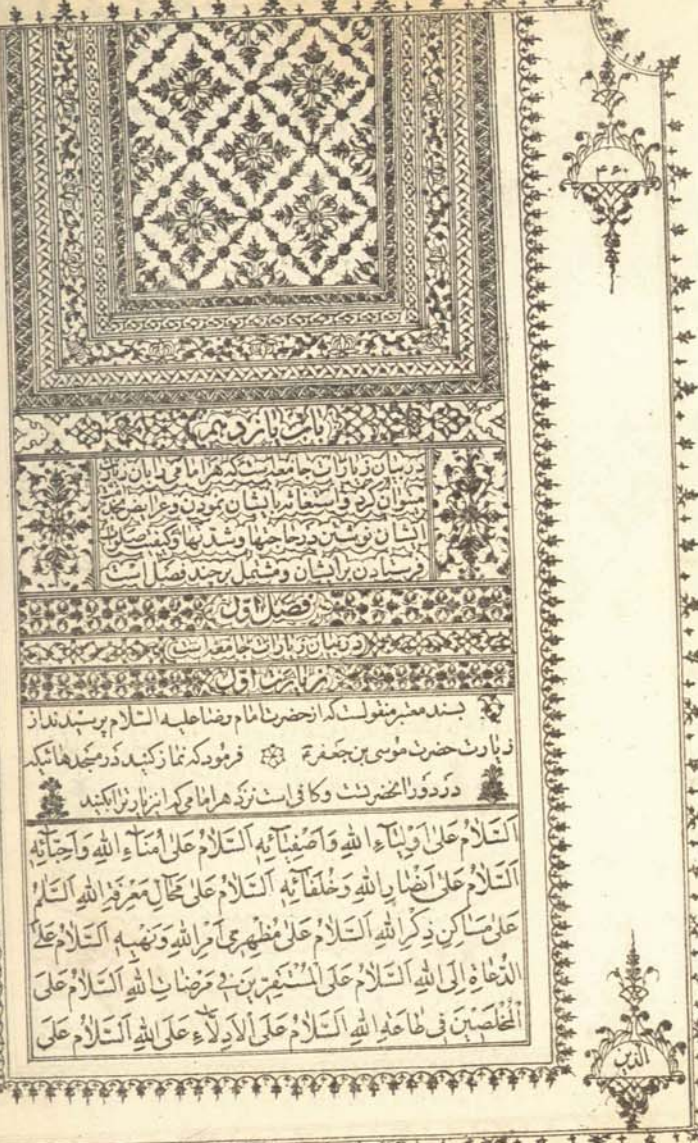 ۴۶۰
باب یازدهم
در بیان زیارات جامعه است که هر امامی را بان زیارت
میتوان کرد و استغاثه بایشان نمودن و عرایض بخدمت
ایشان نوشتن در حاجتها و شدتها و کیفیت صلوات
فرستادن بر ایشان و مشتمل بر چند فصل است
فصل اول
در بیان زیارات جامعه است
زیارت اول
بسند معتبر منقولست که از حضرت امام رضا علیه السلام پرسیدند از
زیارت حضرت موسی بن جعفر ع فرمود که نماز کنید در مسجدهائیکه
در دور انحضرتست و کافی است نزد هر امامی که این زیارت را بکنید
اَلسَّلامُ عَلیٰ اَوْلِیٰآءِ اللهِ وَاَصْفِیٰآئِهِ اَلسَّلامُ عَلیٰ اُمَنٰآءِ اللهِ وَاَحِبّٰآئِهِ
اَلسَّلامُ عَلیٰ اَنْصٰارِ اللهِ وَخُلَفٰآئِهِ اَلسَّلامُ عَلیٰ مَحٰالِّ مَعْرِفَةِ اللهِ اَلسَّلامُ
عَلیٰ مَسٰاکِنِ ذِکْرِ اللهِ اَلسَّلامُ عَلیٰ مُظْهِرِی اَمْرِ اللهِ وَنَهْیِهِ اَلسَّلامُ عَلَی
الدُّعٰاةِ اِلَی اللهِ اَلسَّلامُ عَلَی الْمُسْتَقِرّینَ فی مَرْضٰاتِ اللهِ اَلسَّلامُ عَلَی
الْمُخْلَصینَ فی طٰاعَةِ اللهِ اَلسَّلامُ عَلَی الْاَدِلّٰآءِ عَلَی اللهِ اَلسَّلامُ عَلَی
الذین